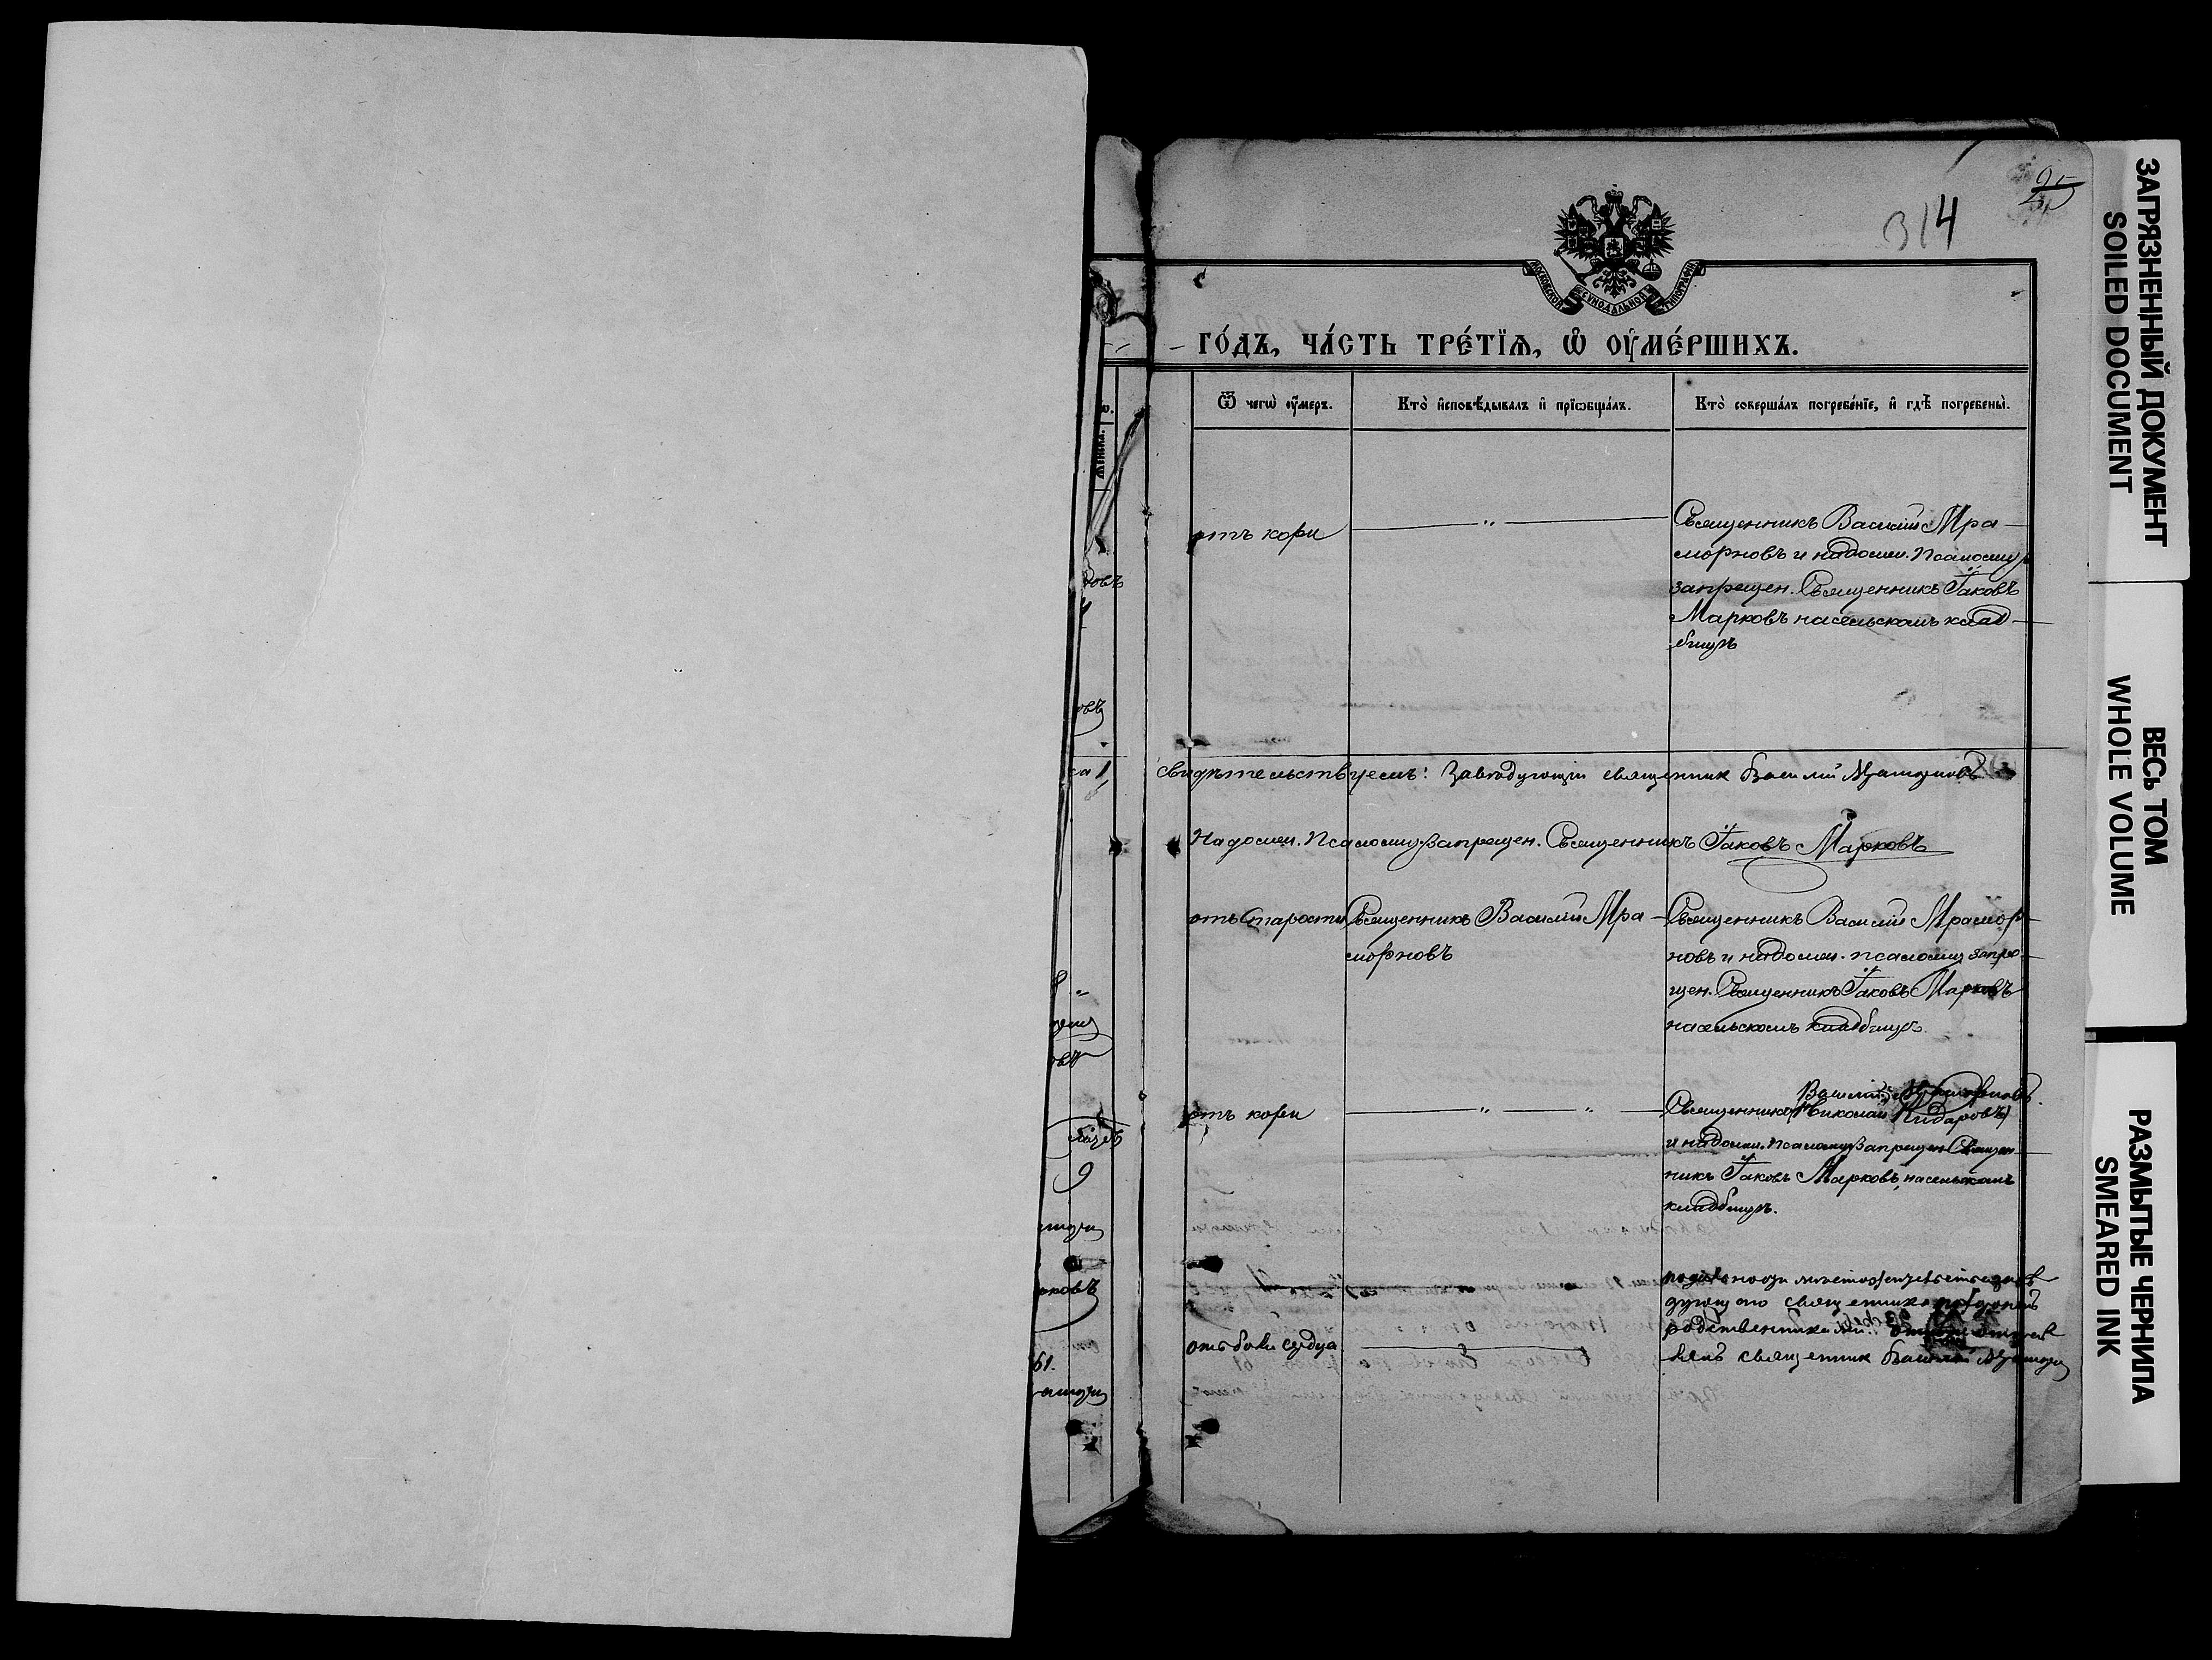 314
МОСКОВСКОЙ СѴНОДАЛЬНОЙ ТИПОГРАФІИ
ГО́ДЪ, ЧА́СТЬ ТРЕ́ТЇѦ, Ѡ҆ ОУ҆МЕ́РШИХЪ.
Ѿ чегѡ̀ оу҆́меръ.
Кто̀ и҆сповѣ́дывалъ и҆ прїѡбща́лъ.
Кто̀ соверша́лъ погребе́нїе, и҆ гдѣ̀ погребены̀.
отъ кори
Священникъ Василій Мра-
морновъ и надомм. псаломщ.
запрещен. Священникъ Іаковъ
Марковъ на сельскомъ клад-
бищѣ
свидѣтельствуемъ: Завѣдующій священник Василій Мраморновъ
Надомм. псаломщ. запрещен. Священникъ Іаковъ Марковъ
отъ старости
Священникъ Василій Мра-
морновъ
Священникъ Василій Мрамор-
новъ и надомм. псаломщ. запре-
щен. Священникъ Іаковъ Марковъ
на сельскомъ кладбищѣ.
отъ кори
Василій Мраморновъ.
Священникъ (Николай Кидаровъ)
и надомм. псаломщ. запрещен. Священ-
никъ Іаковъ Марковъ, на сельскомъ
кладбищѣ.
отъ боли сердца
дующаго священника
родственниками.
священник Василій
ЗАГРЯЗНЕННЫЙ ДОКУМЕНТ
SOILED DOCUMENT
ВЕСЬ ТОМ
WHOLE VOLUME
РАЗМЫТЫЕ ЧЕРНИЛА
SMEARED INK